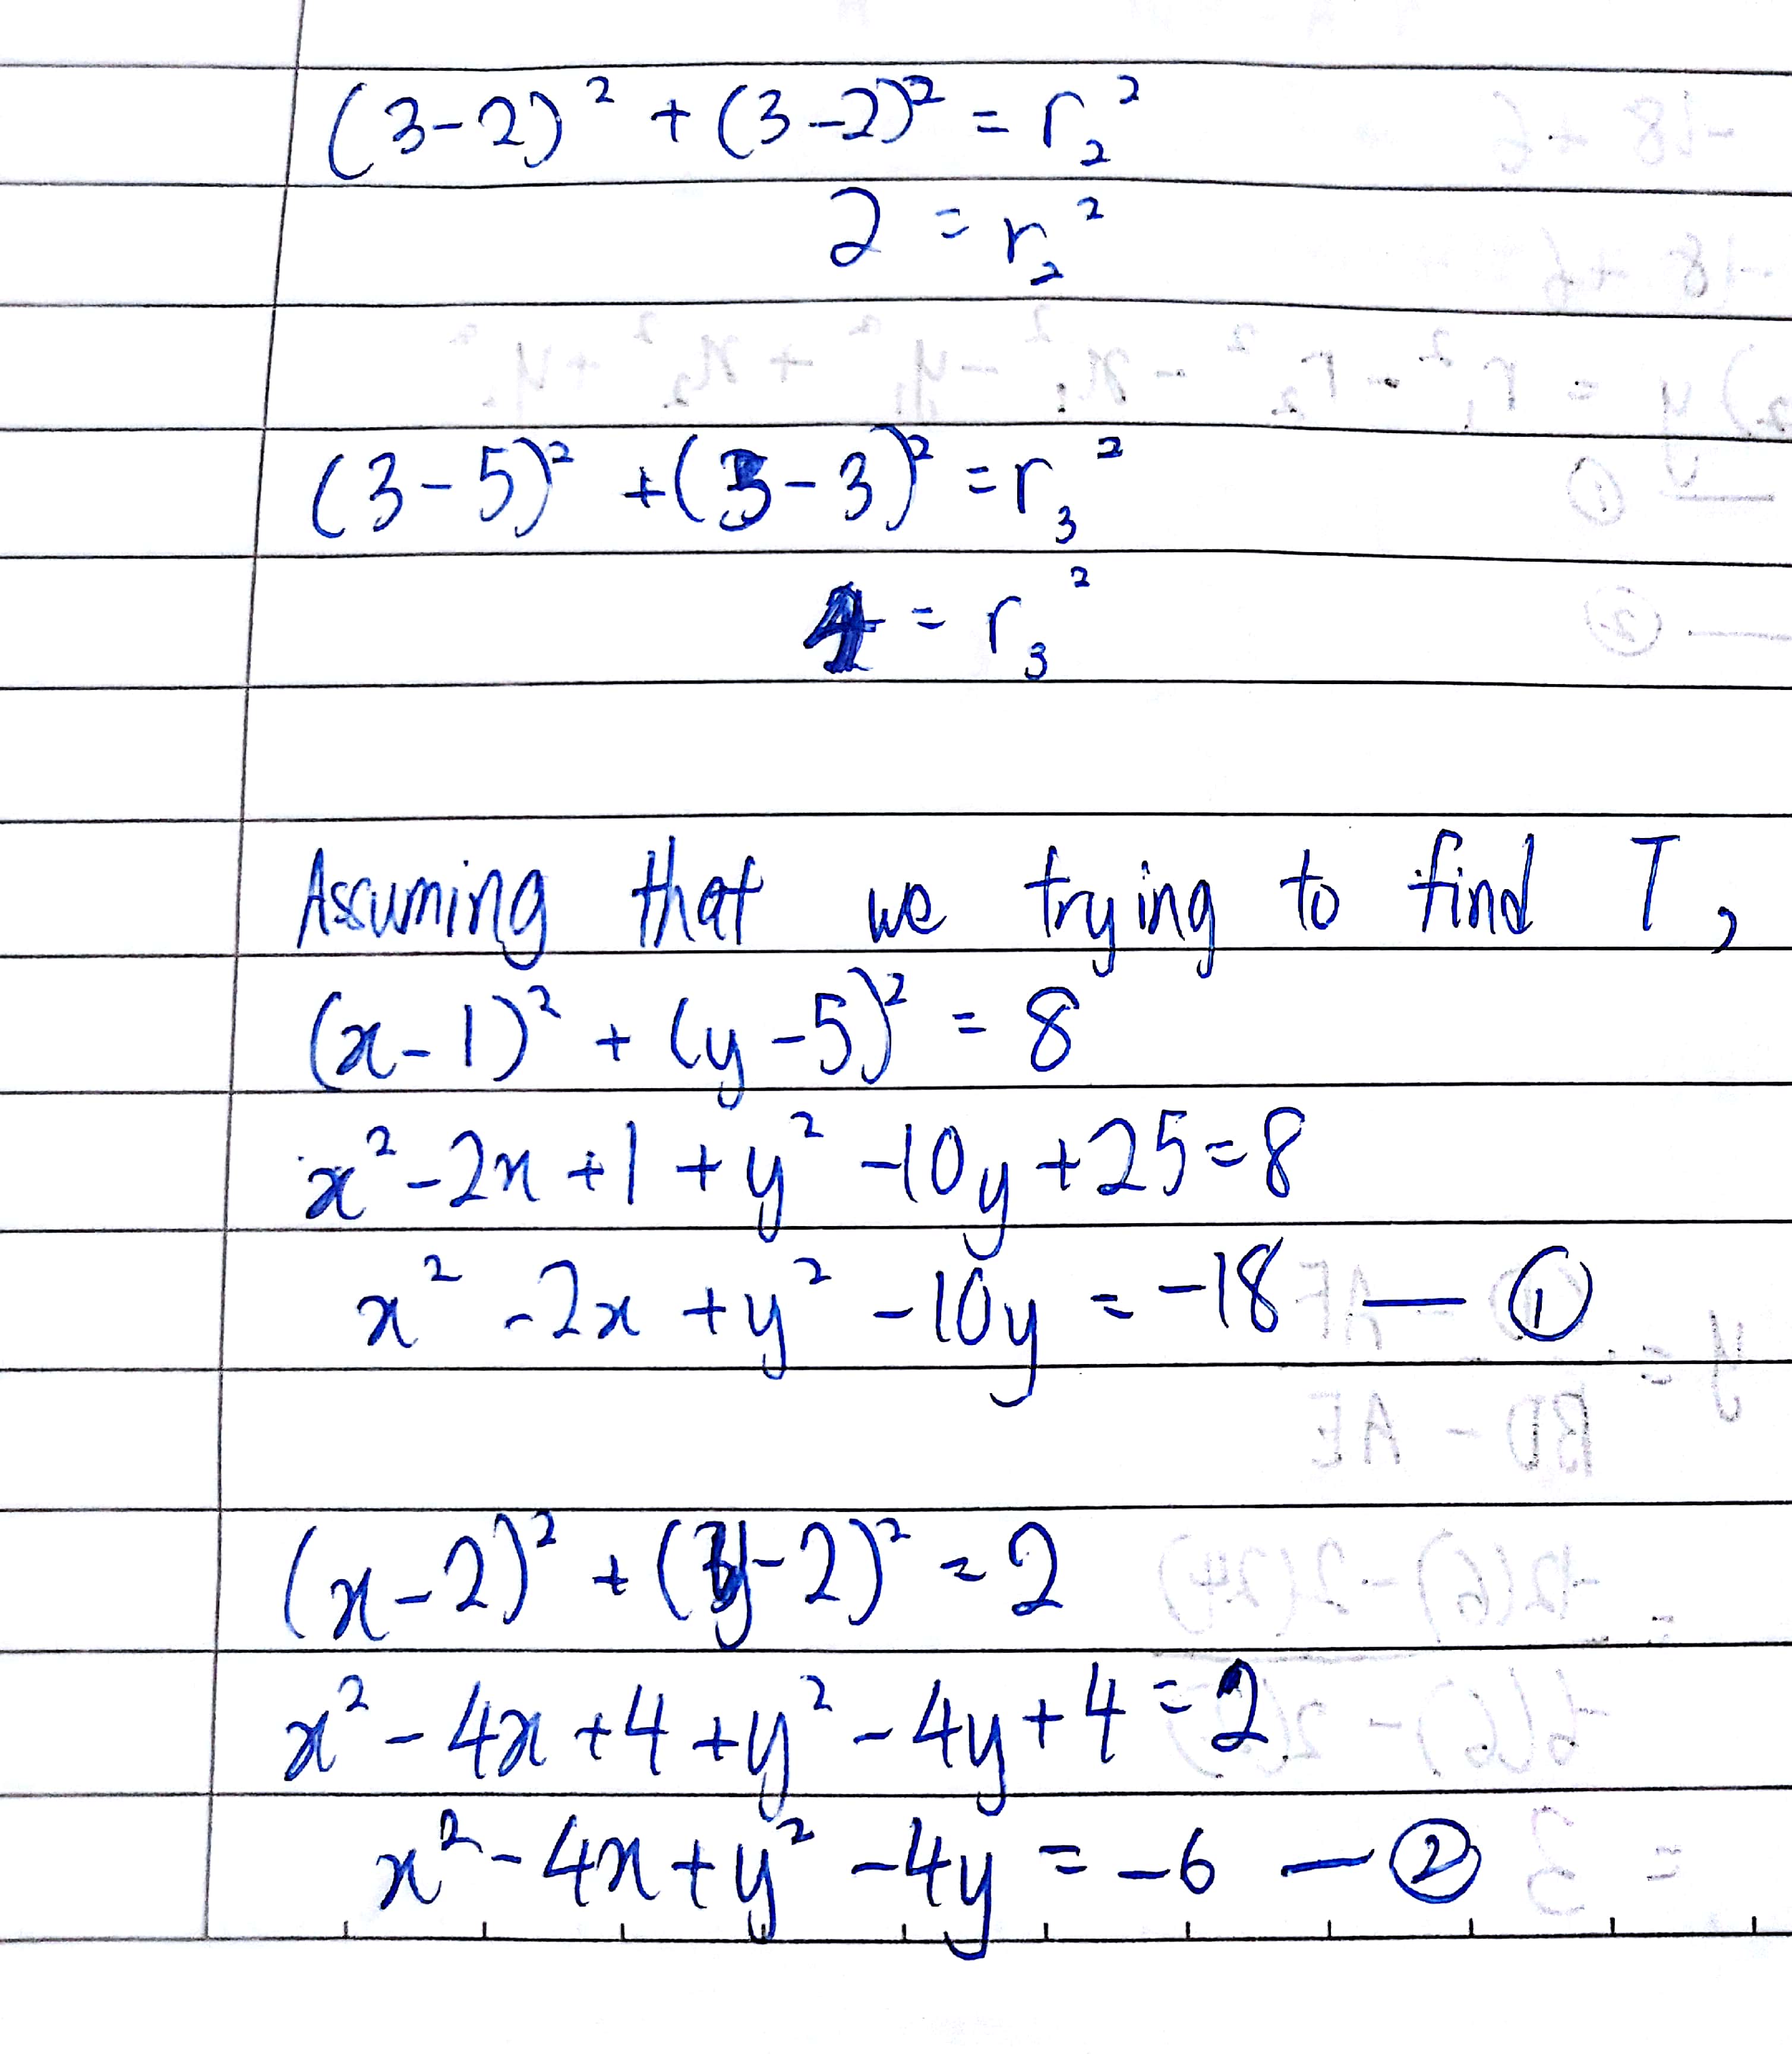 (3-2)² + (3-2)² = r₂²
2 = r₂²
(3-5)² + (3-3)² = r₃²
4 = r₃²
Assuming that we trying to find T,
(x-1)² + (y-5)² = 8
x² - 2x + 1 + y² - 10y + 25 = 8
x² - 2x + y² - 10y = -18 — ①
(x-2)² + (y-2)² = 2
x² - 4x + 4 + y² - 4y + 4 = 2
x² - 4x + y² - 4y = -6 — ②